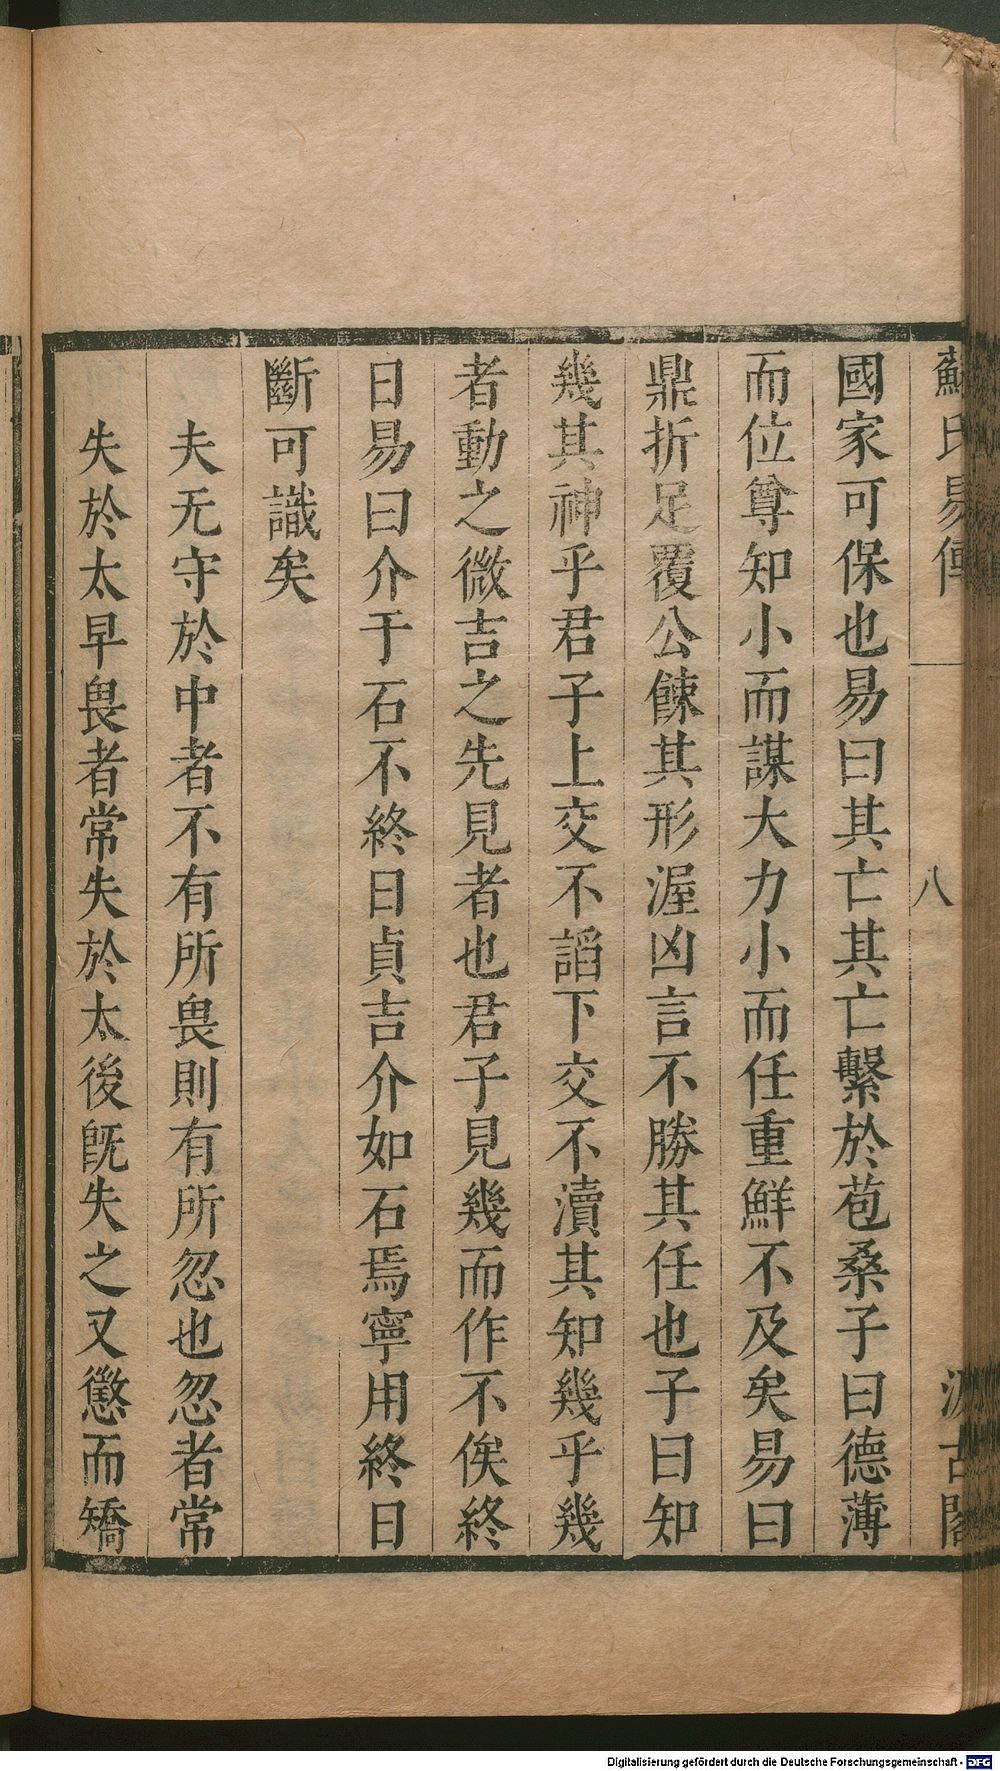 蘇氏易傳 八 汲古閣
國家可保也易曰其亡其亡繫於苞桑子曰德薄
而位尊知小而謀大力小而任重鮮不及矣易曰
鼎折足覆公餗其形渥凶言不勝其任也子曰知
幾其神乎君子上交不謟下交不瀆其知幾乎幾
者動之微吉之先見者也君子見幾而作不俟終
日易曰介于石不終日貞吉介如石焉寧用終日
斷可識矣
夫无守於中者不有所畏則有所忽也忽者常
失於太早畏者常失於太後旣失之又懲而矯
Digitalisierung gefördert durch die Deutsche Forschungsgemeinschaft - DFG